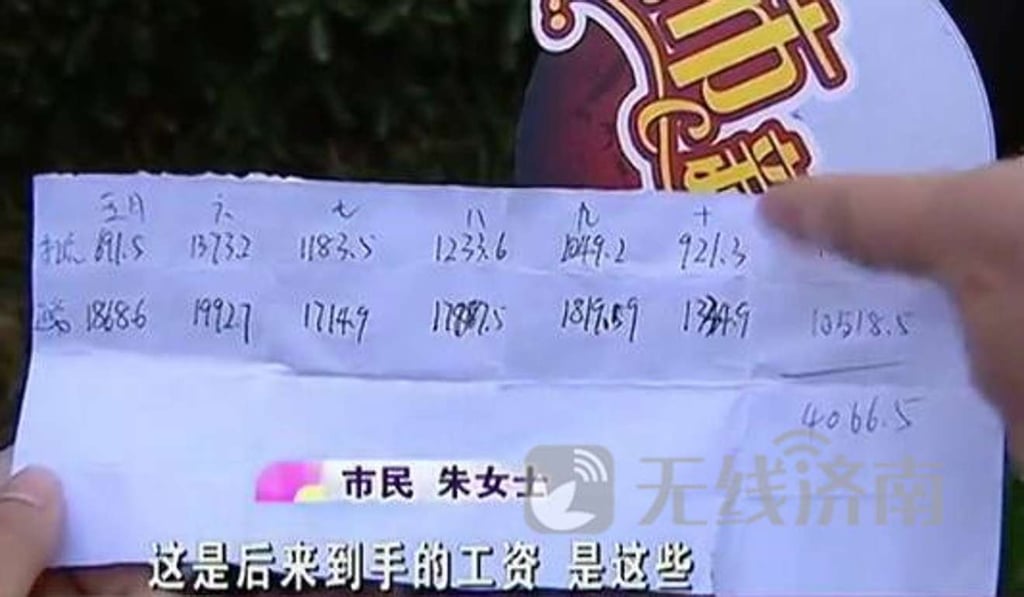 市
五月 六 七 八 九 十
891.5 1373.2 1183.5 1233.6 1049.2 921.3
1868.6 1992.7 1714.9 1819.59 10518.5
4066.5
市民 朱女士
无线济南
这是后来到手的工资 是这些